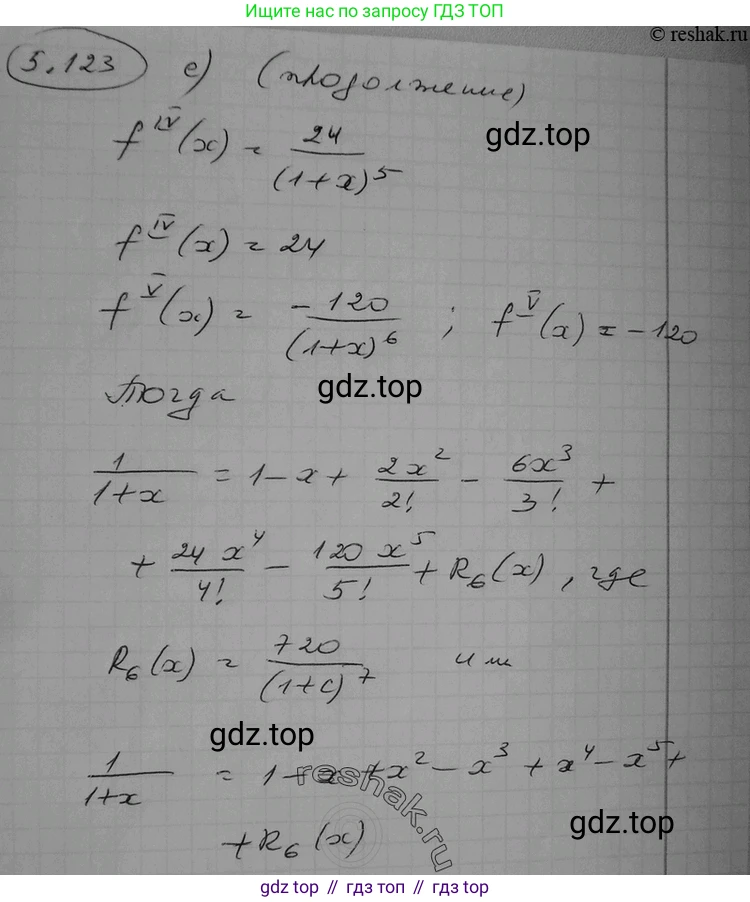 Ищите нас по запросу ГДЗ ТОП
© reshak.ru
5.123 е) (продолжение)
f^IV(x) = 24/(1+x)^5
gdz.top
f^IV(x) = 24
f^V(x) = -120/(1+x)^6 ; f^V(x) = -120
Тогда
gdz.top
1/(1+x) = 1 - x + 2x^2/2! - 6x^3/3! +
+ 24 x^4/4! - 120 x^5/5! + R_6(x), где
R_6(x) = 720/(1+c)^7 или
gdz.top
1/(1+x) = 1 - x + x^2 - x^3 + x^4 - x^5 +
reshak.ru
+ R_6(x)
gdz.top
gdz top // гдз топ // gdz top